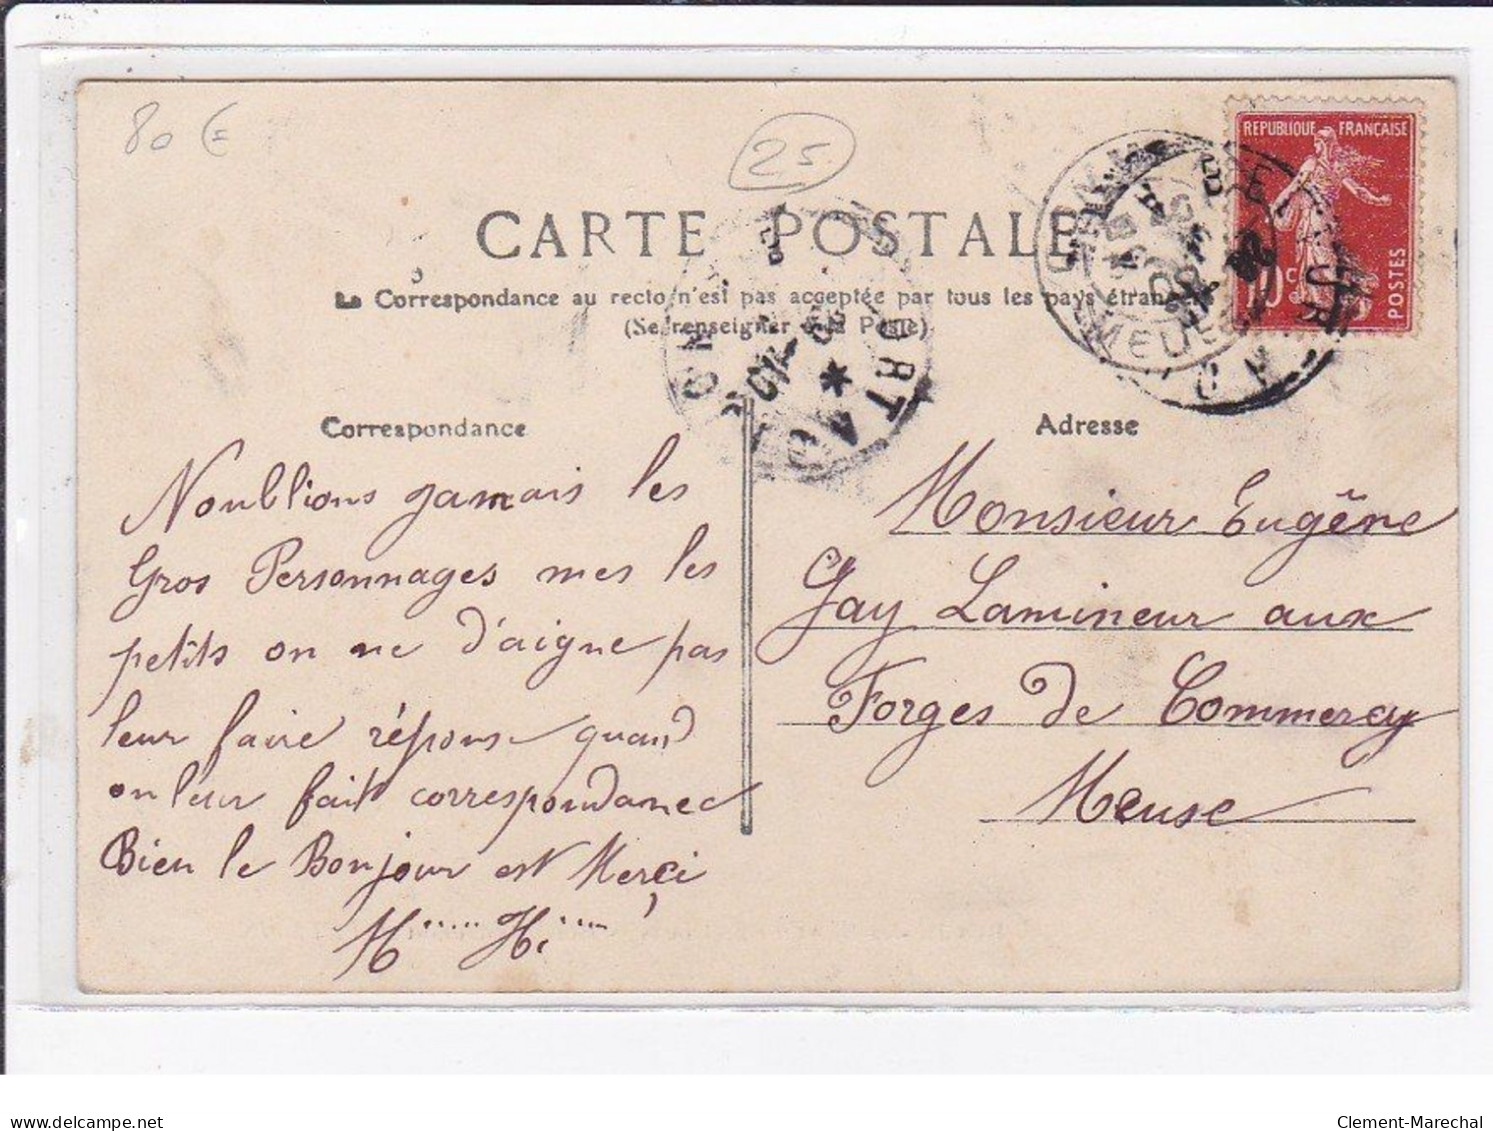 80 €
25
CARTE POSTALE
La Correspondance au recto n'est pas acceptée par tous les pays étrangers
(Se renseigner à la Poste)
Correspondance
Noublions jamais les
Gros Personnages mes les
petits on ne d'aigne pas
leur faire répons quand
on leur fait correspondance
Bien le Bonjour est Merçi
H..... H.....
Adresse
Monsieur Eugêne
Gay Lamineur aux
Forges de Commercy
Meuse
REPUBLIQUE FRANÇAISE
10c
POSTES
BELFORT
MEUSE
delcampe.net
Clement-Marechal